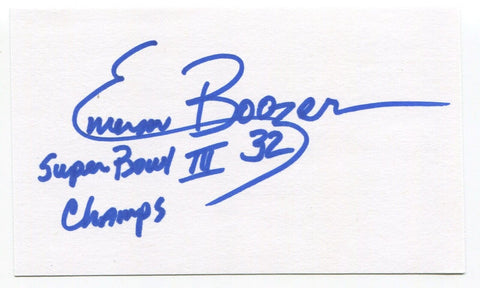 Emerson Boozer
32
Super Bowl III
Champs